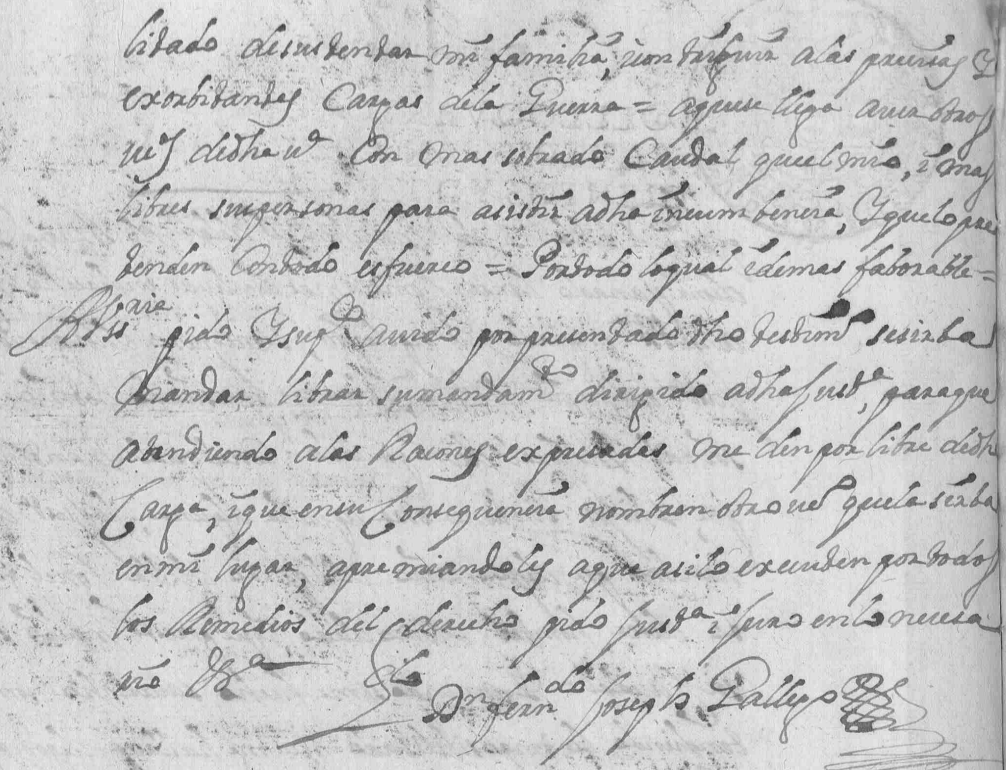 litado desustentar mi familia, icontribuir alas precisas Y
exorbitantes Cargas dela Guerra = aquese llega aver otros
vezs dedha vd Con mas sobrado Caudal quael mio, i mas
libres suspersonas para asistir adha incumbencia, Yquelopre
tenden Contodo esfuerco = Portodo loqual idemas faborable =
pido Ysupco avido por presentado dho testimo sesirba
Mandar librar sumandamto dirigido adha Justa, paraque
atendiendo alas Racones expresadas me denporlibre dedha
Carga, ique ensu Consequencia nombren otro vezo quela sirba
enmi lugar, apremiandoles aque asilo executen portodos
los Remedios del derecho pido Justa i Juro enlo necesa
rio &a
Dn Ferndo Joseph Gallego